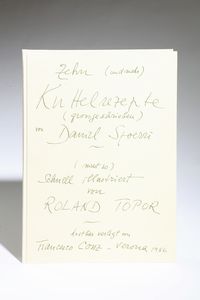 Zehn (und mehr)
Kuttelrezepte
(grossgeschrieben)
von Daniel Spoerri
schnell illustriert
von
ROLAND TOPOR
verlegt von
Francesco Conz - Verona 1986